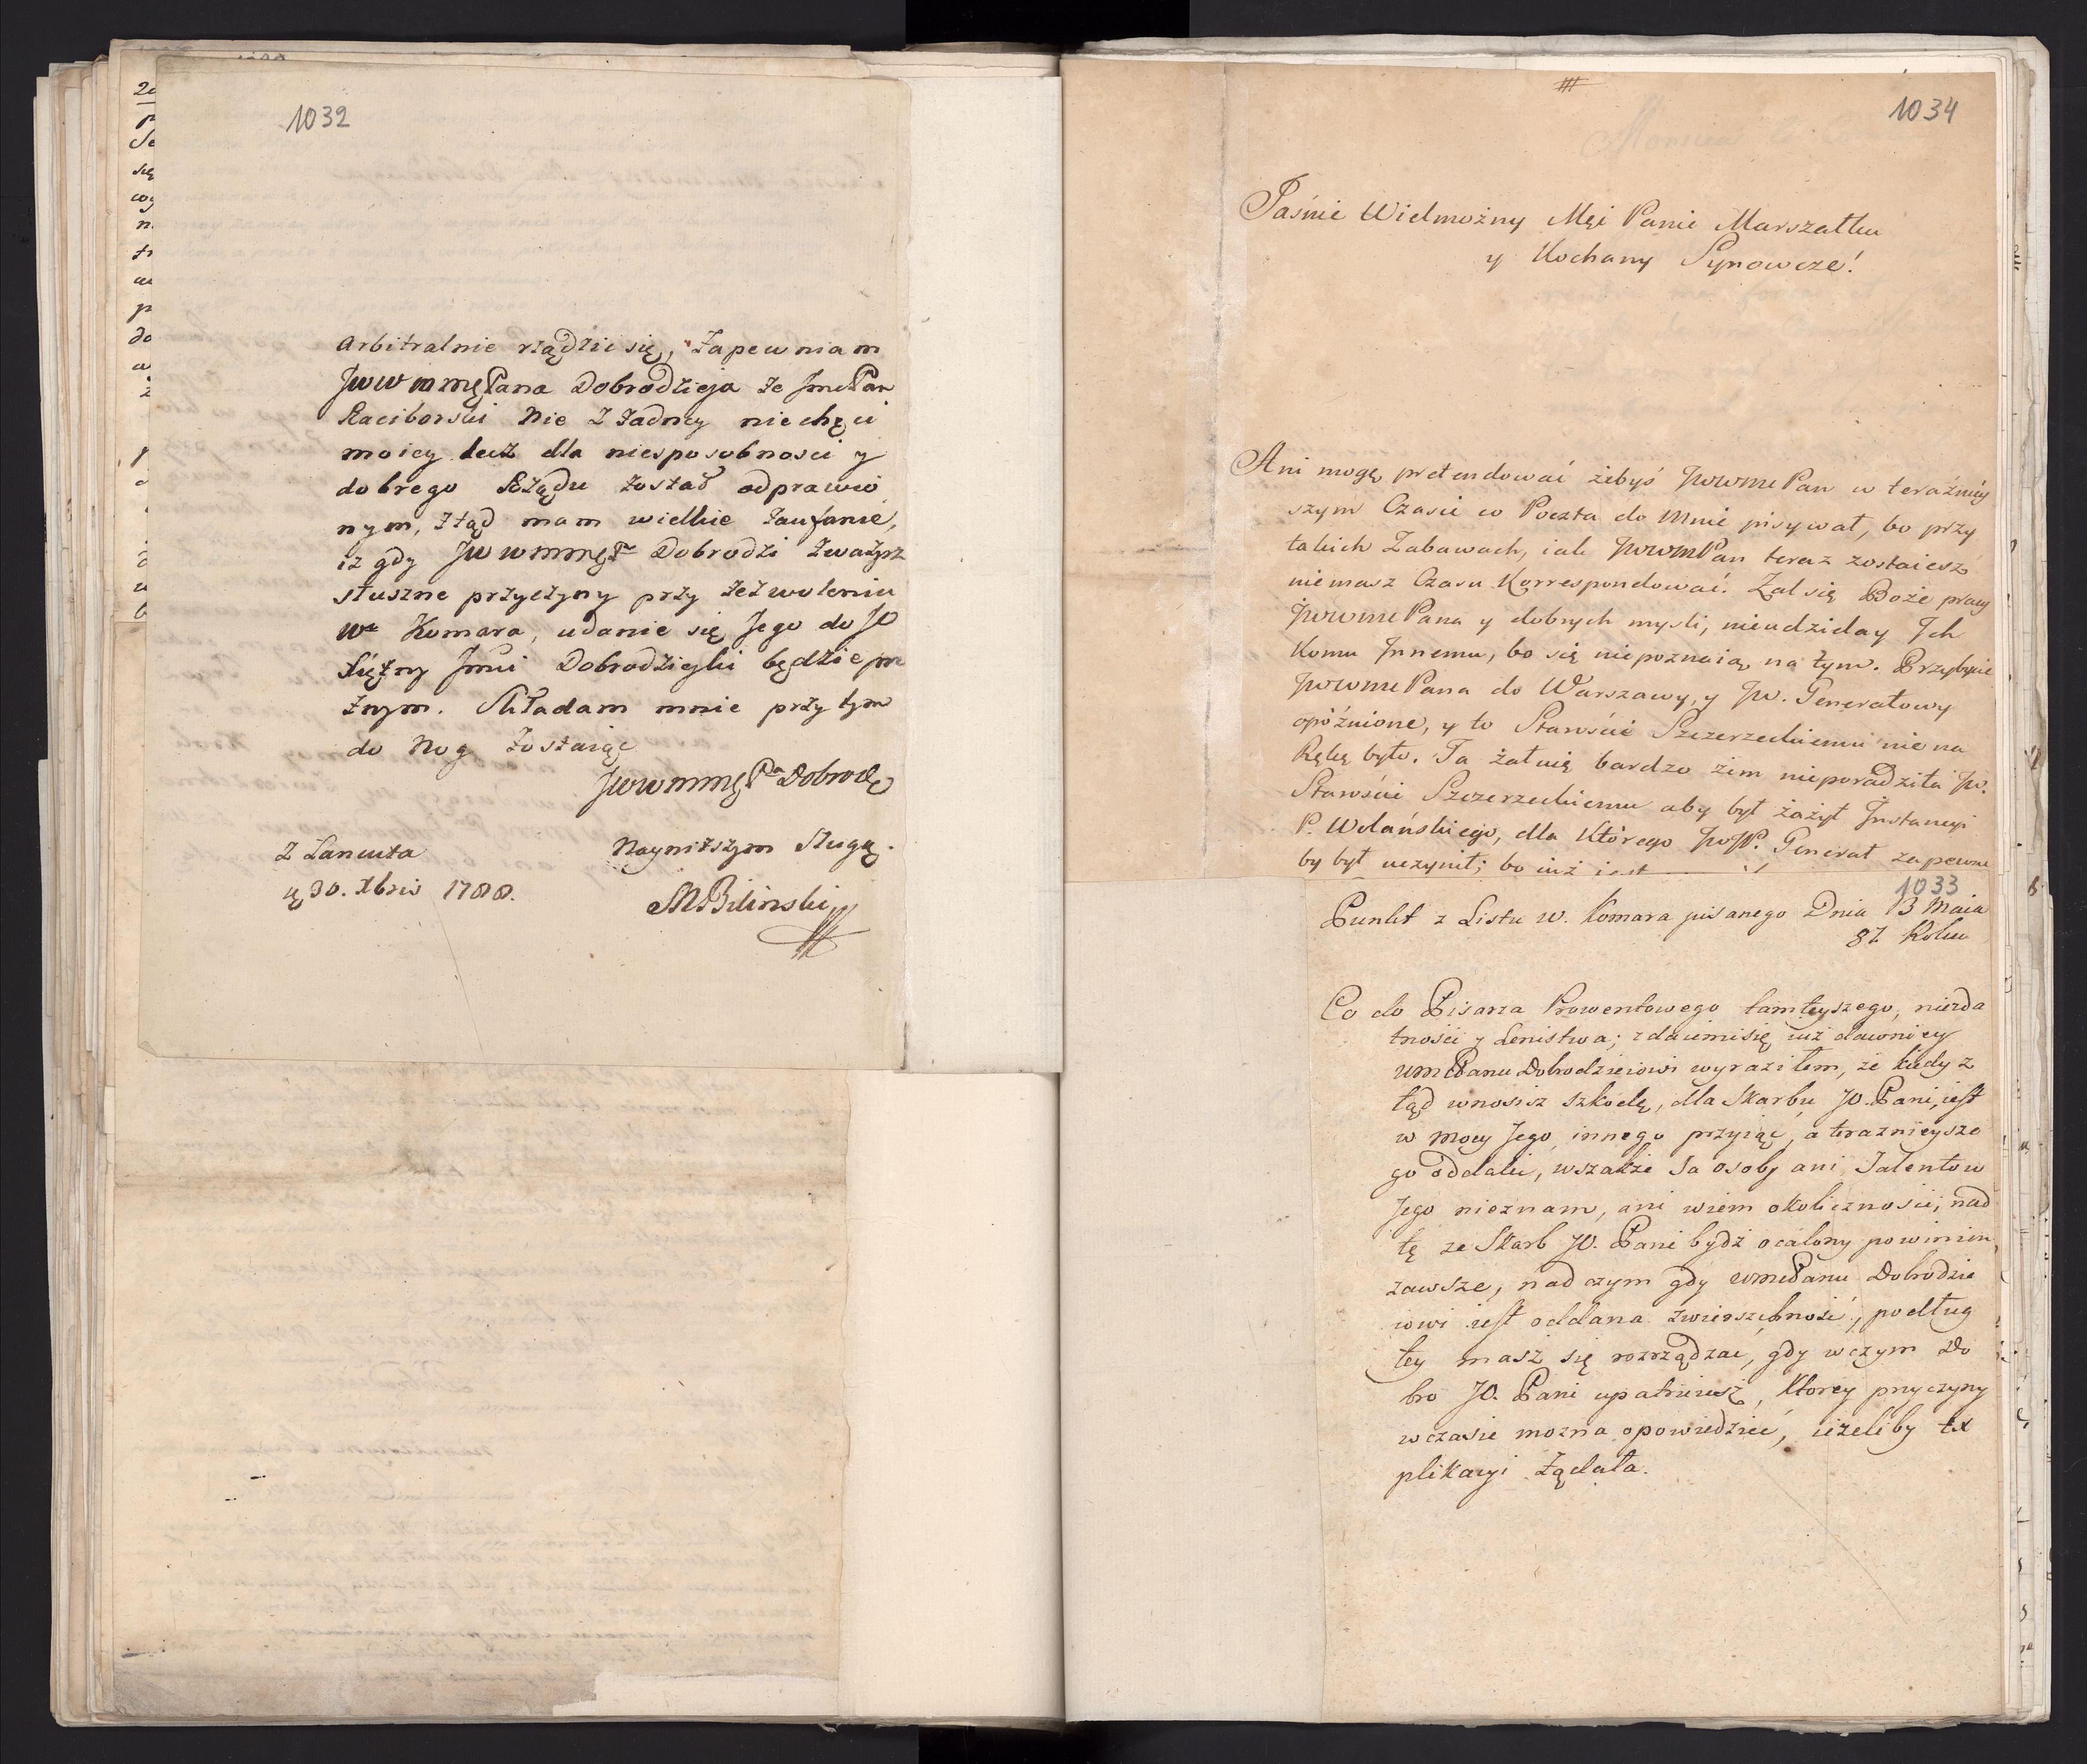 1032
Arbitralnie rządzic się, zapewniam
JWWmmęPana Dobrodzieja że JmcPan
Raciborski Nie z żadney niechęci
moiey lecz dla niesposobnosci y
dobrego Rządu został odprawio
nym, ztąd mam wielkie zaufanie,
iż gdy JWWmmęPa Dobrodzi zwazysz
słuszne przyczyny przy zezwoleniu
We Komara, udanie się Jego do JO
Xiężny Jmci Dobrodzieyki będzie
żnym. Składam mnie przy tym
do Nog zostaiąc
JWWmmęPa Dobrodę
Nayniższym Sługą.
Z Lancuta
ą 30. Xbris 1788.
MBilinski
1034
Jaśnie Wielmożny Mći Panie Marszałku
y Kochany Synowcze!
Ani mogę pretendować żebyś JWWmePan w teraźniey
szym Czasie co Poczta do Mnie pisywał, bo przy
takich Zabawach, iak JWWmPan teraz zostaiesz
niemasz Czasu Korrespondować. Zal się Boże pracy
JWWmePana y dobnych mysli, nieudzielay Ich
Komu Innemu, bo się niepoznaią na tym. Przybycie
JWWmePana do Warszawy, y JW. Generałowy
opóźnione, y to Starości Szczerzeckiemu nie na
Rękę było. Ja żałuię bardzo żim nieporadziła JW.
Starości Szczerzeckiemu aby był zażył Jnstancyi
P. Wolańskiego, dla którego JWJP. Generał zapewne
by był uczynił; bo iuż iest
1033
Punkt z Listu W. Komara pisanego Dnia 13 Maia
87 Roku
Co do Pisarza Prowentowego tamteyszego, niezda
tności y Lenistwa; zdaiemisię iuż dawniey
WmPanu Dobrodzieiowi wyraziłem, że kiedy z
tąd wnosisz szkodę, dla Skarbu JO. Pani, iest
w mocy Jego innego przyiąć, a teraznieysze
go oddalić, wszakże Ja osoby ani Talentow
Jego nieznam, ani wiem okoliczności; nad
tę ze Skarb JO. Pani bydź ocalony powinien
zawsze, nad czym gdy WmPanu Dobrodzie
iowi iest oddana zwierszchność, podług
tey masz się rozrządzać, gdy w czym Do
bro JO. Pani upatruiesz, Ktorey przyczyny
wczasie mozna opowiedzieć, ieżeliby Ex
plikacyi Żądała.